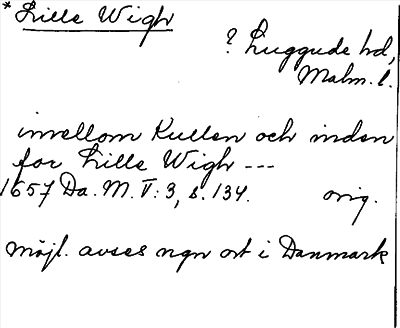 * Lille Wigh
? Luggude hd,
Malm. l.
imellom Kullen och inden
for Lille Wigh ---
1657 Da. M. V:3, s. 134. orig.
möjl. avses ngn ort i Danmark